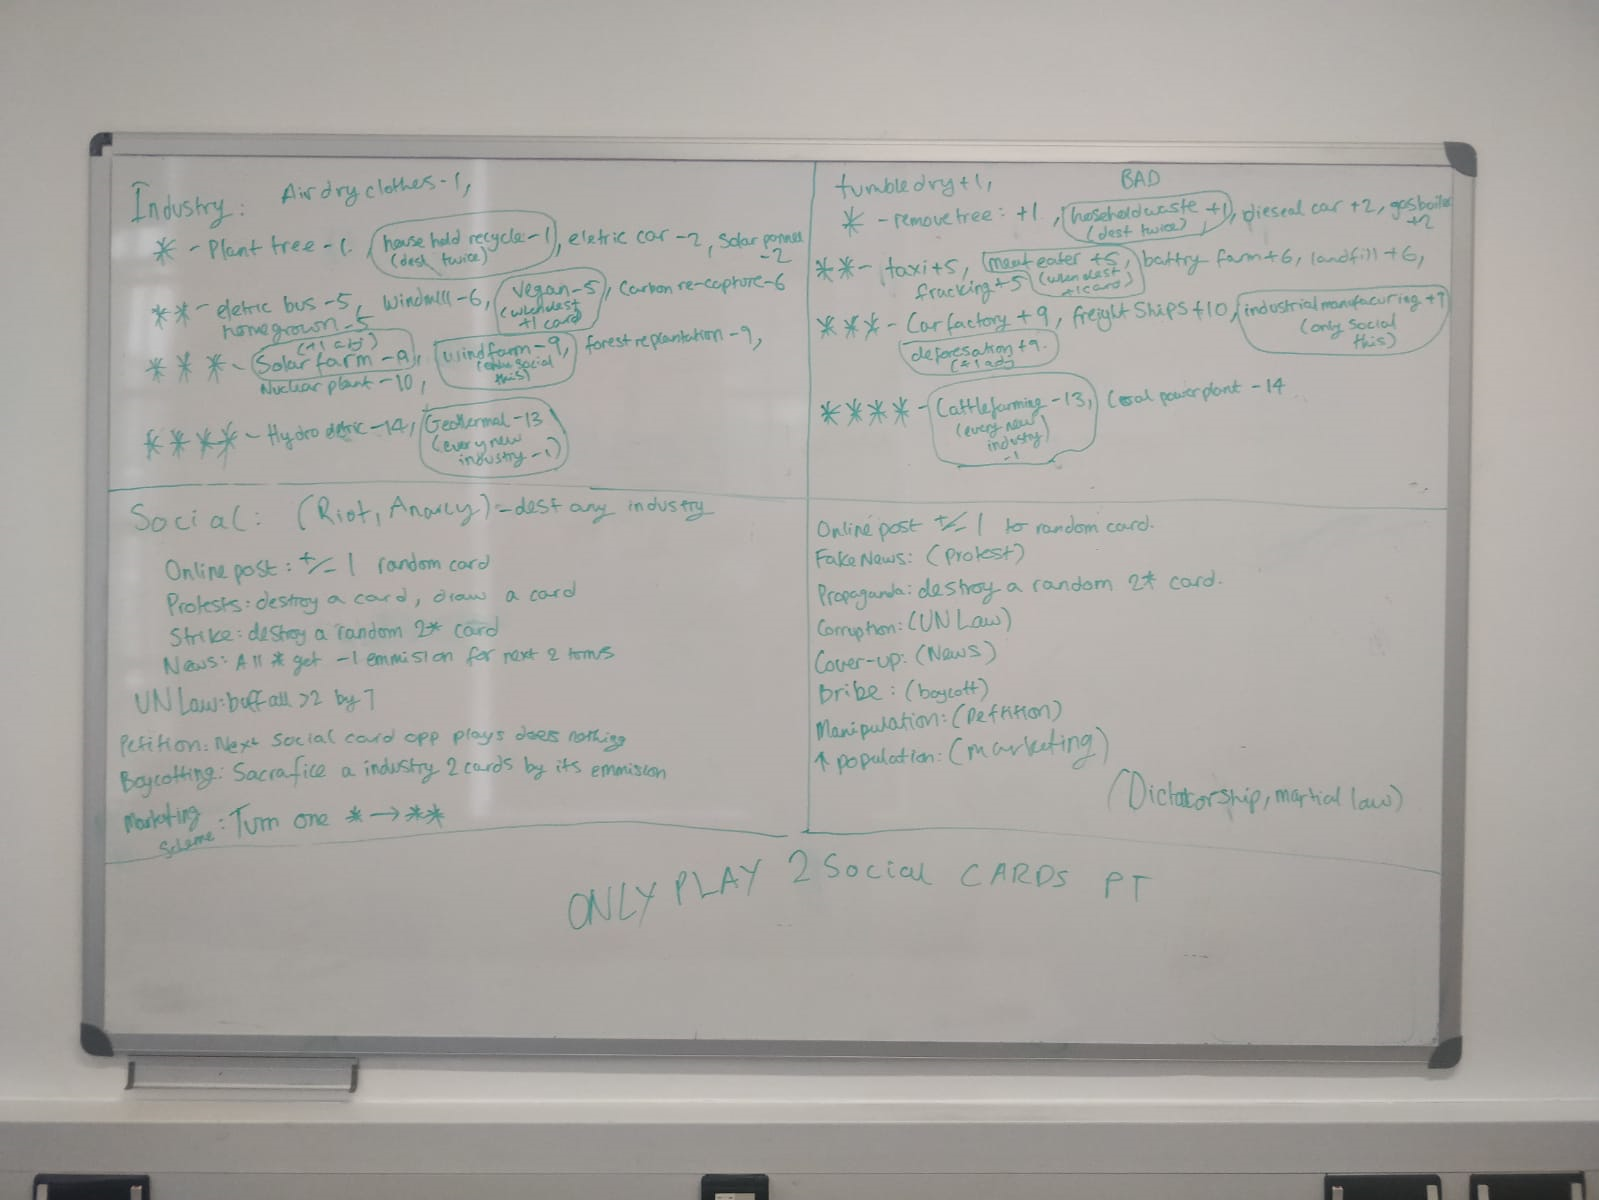 Industry: Air dry clothes -1,
* - Plant tree -1, house hold recycle -1, eletric car -2, Solar pannel -2
(dest twice)
** - eletric bus -5, windmill -6, Vegan -5, Carbon re-capture -6
homegrown -5 (when dest +1 card)
(+1 adj)
*** - Solar farm -9, wind farm -9, forest replantation -9,
Nuclear plant -10, (only social this)
**** - Hydro eletric -14, Geothermal -13
(every new industry -1)
tumble dry +1, BAD
* - remove tree: +1, household waste +1, dieseal car +2, gas boiler +2
(dest twice)
** - taxi +5, meat eater +5, battry farm +6, landfill +6,
fracking +5 (when dest +1 card)
*** - Car factory +9, freight ships +10, industrial manufacuring +9
(only social this)
deforesation +9.
(+1 adj)
**** - Cattle farming -13, Coal power plant -14
(every new
industry
-1
Social: (Riot, Anarcy) - dest any industry
Online post: +/- 1 random card
Protests: destroy a card, draw a card
Strike: destroy a random 2* card
News: All * get -1 emmision for next 2 turns
UN Law: buff all >2 by 1
Petition: Next social card opp plays does nothing
Boycotting: Sacrafice a industry 2 cards by its emmision
Marketing
Scheme: Turn one * → **
Online post +/- 1 to random card.
Fake News: (protest)
Propaganda: destroy a random 2* card.
Corruption: (UN Law)
Cover-up: (News)
Bribe: (boycott)
Manipulation: (Petition)
↑ population: (marketing)
(Dictatorship, martial law)
ONLY PLAY 2 Social CARDS PT